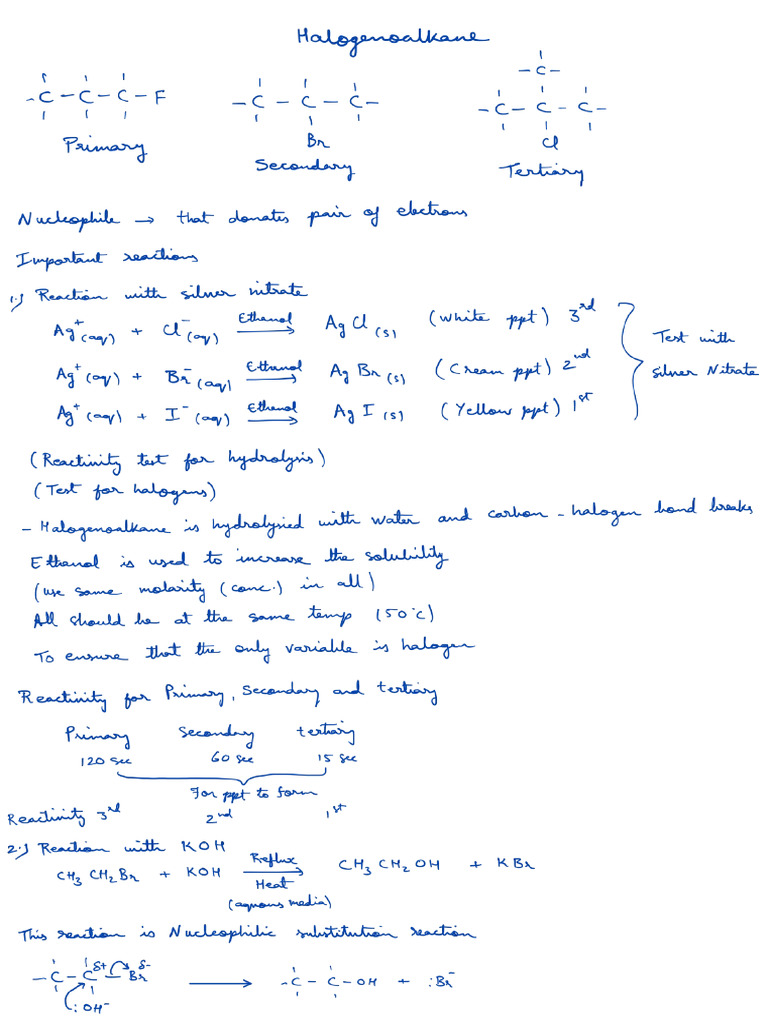 Halogenoalkane
- C -
- C - C - C - F
- C - C - C -
- C - C - C -
Br
Cl
Primary
Secondary
Tertiary
Nucleophile → that donates pair of electrons
Important reactions
1.) Reaction with silver nitrate
Ag⁺(aq) + Cl⁻(aq) Ethanol → AgCl(s) (White ppt) 3rd
Test with
Ag⁺(aq) + Br⁻(aq) Ethanol → AgBr(s) (Cream ppt) 2nd
silver Nitrate
Ag⁺(aq) + I⁻(aq) Ethanol → AgI(s) (Yellow ppt) 1st
(Reactivity test for hydrolysis)
(Test for halogens)
- Halogenoalkane is hydrolysied with water and carbon-halogen bond breaks
Ethanol is used to increase the solubility
(use same molarity (conc.) in all)
All should be at the same temp (50°C)
To ensure that the only variable is halogen
Reactivity for Primary, Secondary and tertiary
Primary Secondary tertiary
120 sec 60 sec 15 sec
For ppt to form
Reactivity 3rd 2nd 1st
2.) Reaction with KOH
CH₃CH₂Br + KOH Reflux → Heat CH₃CH₂OH + KBr
(aquous media)
This reaction is Nucleophilic substitution reaction
- C - C δ+ - Br δ- → - C - C - OH + :Br⁻
:OH⁻